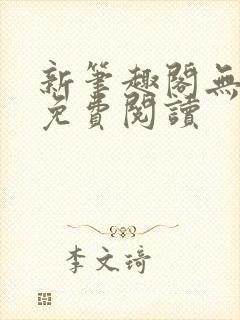 新筆趣閣無
免費閱讀
李文琦